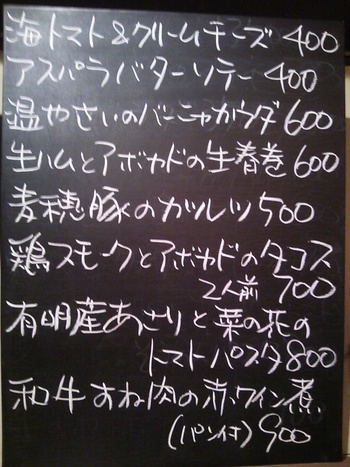 海トマト&クリームチーズ 400
アスパラバターソテー 400
温やさいのバーニャカウダ 600
生ハムとアボカドの生春巻 600
麦穂豚のカツレツ 500
鶏スモークとアボカドのタコス
2人前 700
有明産あさりと菜の花の
トマトパスタ 800
和牛すね肉の赤ワイン煮
(パン付) 900